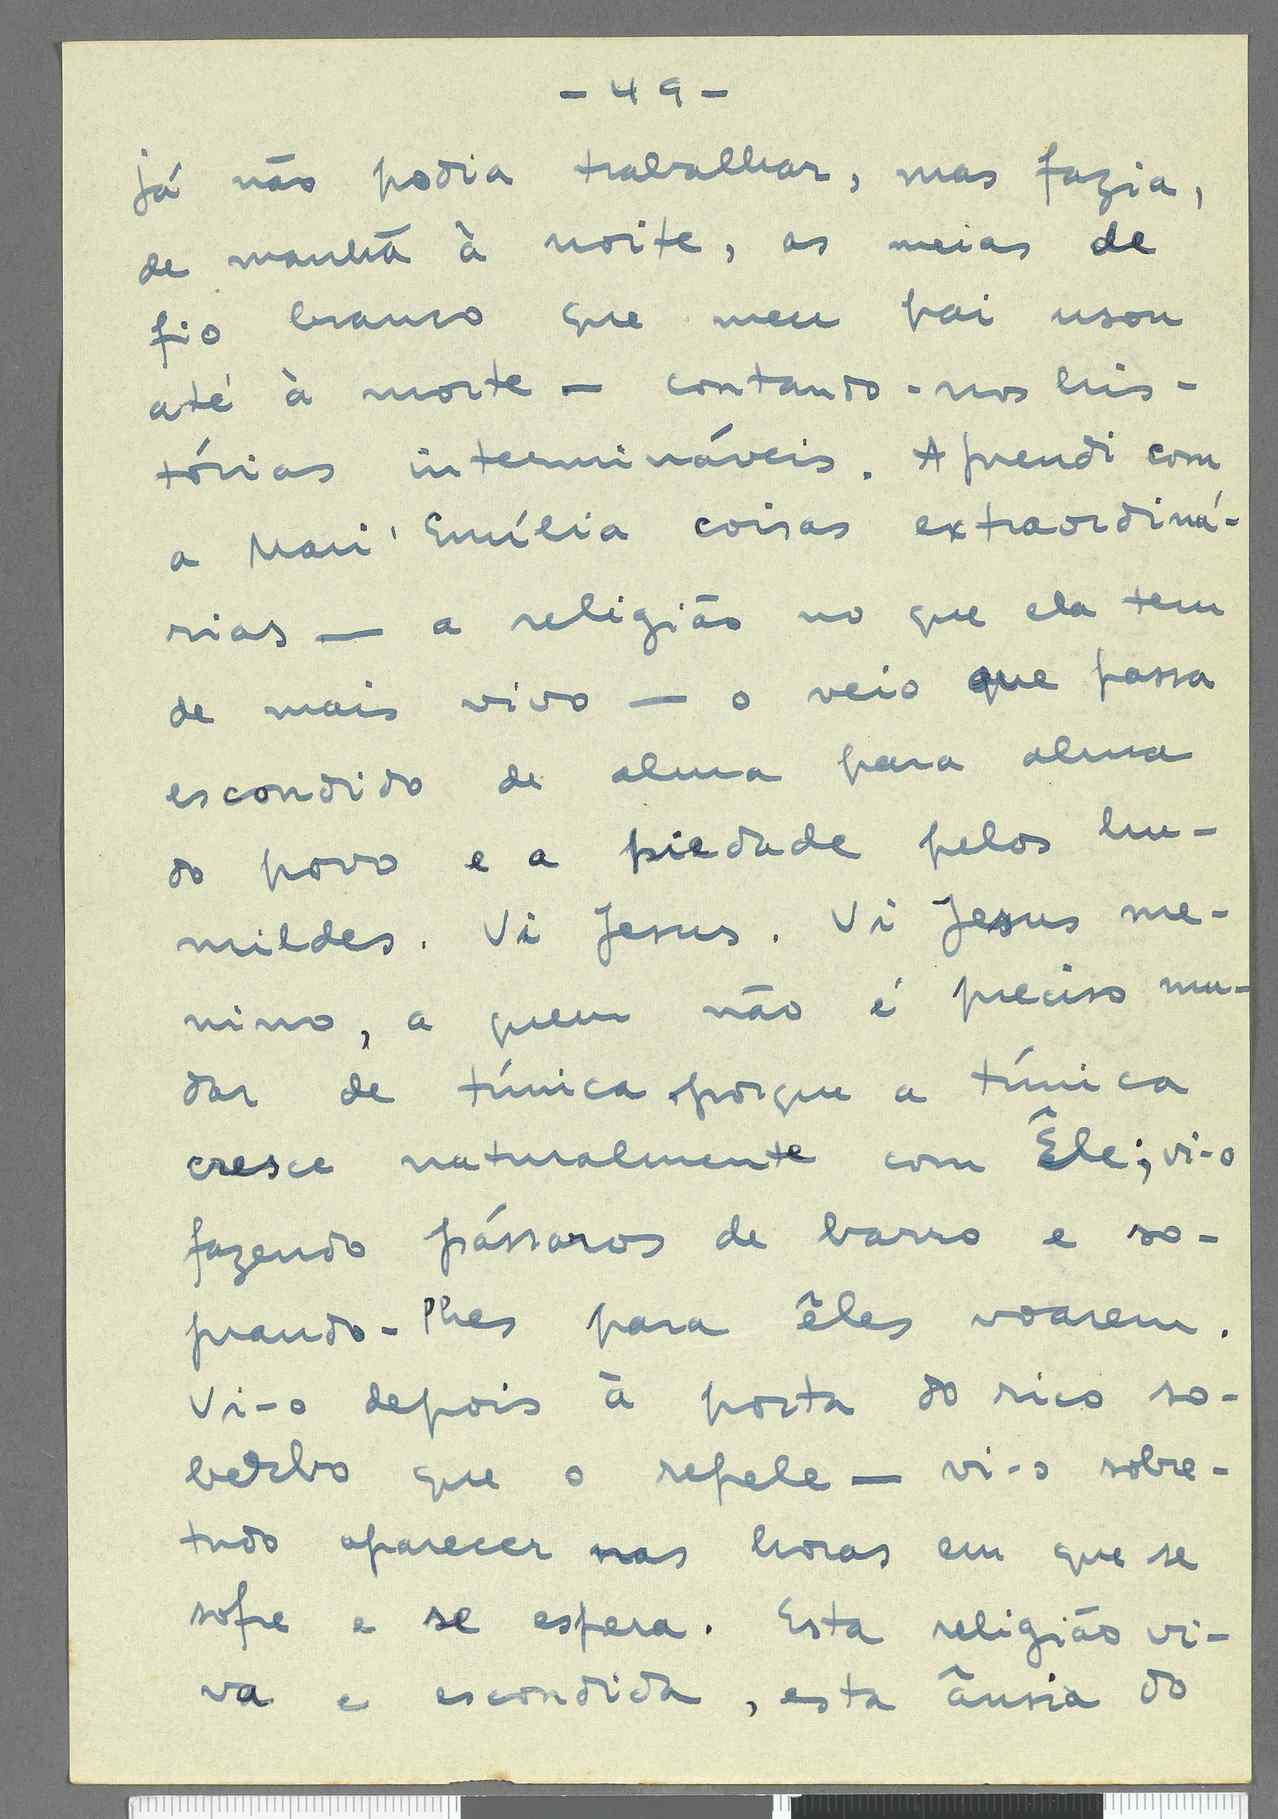 - 49 -
já não podia trabalhar, mas fazia,
de manhã à noite, as meias de
fio branco que meu pai usou
até à morte — contando-nos his-
tórias intermináveis. Aprendi com
a Mari' Emília coisas extraordiná-
rias — a religião no que ela tem
de mais vivo — o veio que passa
escondido de alma para alma
do povo e a piedade pelos hu-
mildes. Vi Jesus. Vi Jesus me-
nino, a quem não é preciso mu-
dar de túnica porque a túnica
cresce naturalmente com Êle; vi-o
fazendo pássaros de barro e so-
prando-lhes para êles voarem.
Vi-o depois à porta do rico so-
berbo que o repele — vi-o sobre-
tudo aparecer nas horas em que se
sofre e se espera. Esta religião vi-
va e escondida, esta ânsia do